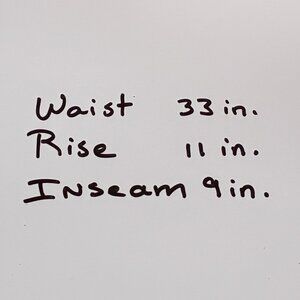 Waist 33 in.
Rise 11 in.
Inseam 9 in.